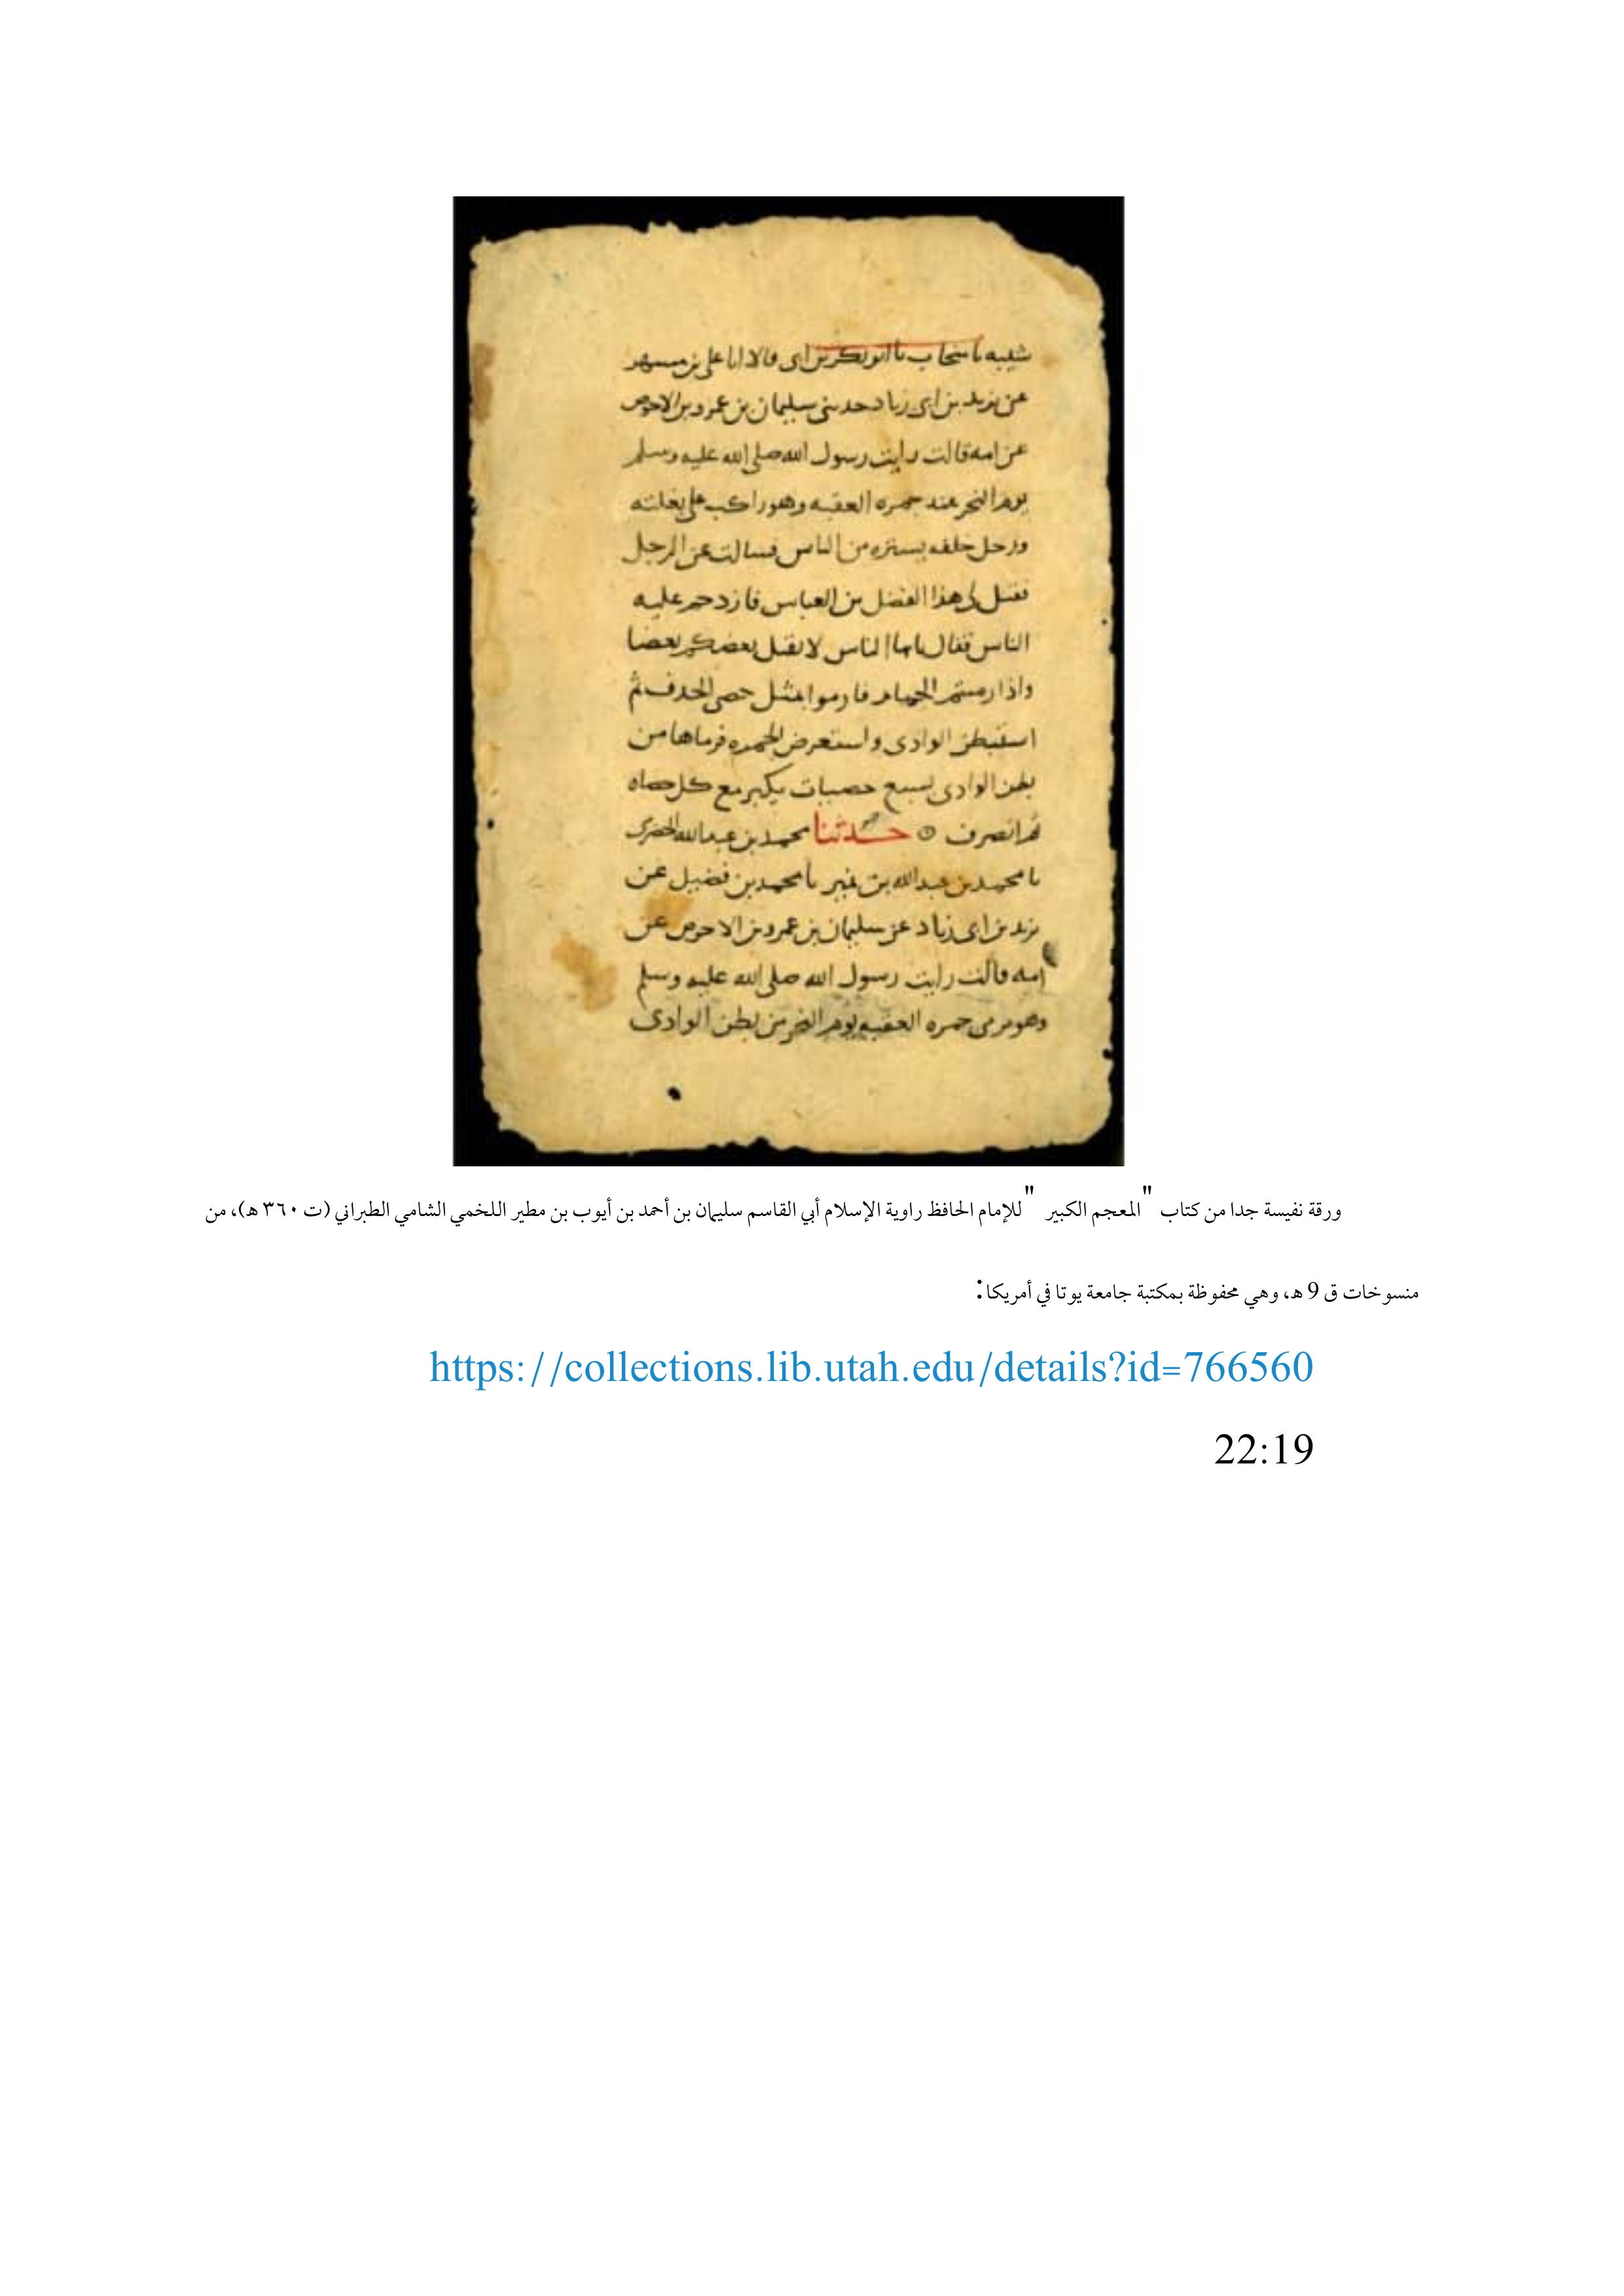 شيبه نا منجاب نا ابو بكر بن ابى قالا انا على بن مسهر
عن يزيد بن ابى زياد حدثنى سليمان بن عمرو بن الاحوص
عن امه قالت رايت رسول الله صلى الله عليه وسلم
يوم النحر عند جمره العقبه وهو راكب على بغلته
ورجل خلفه يستره من الناس فسالت عن الرجل
فقيل لى هذا الفضل بن العباس فازدحم عليه
الناس فقال يا ايها الناس لا يقتل بعضكم بعضا
واذا رميتم الجمار فارموا بمثل حصى الخذف ثم
استبطن الوادى واستعرض الجمره فرماها من
بطن الوادى بسبع حصيات يكبر مع كل حصاه
ثم انصرف حدثنا محمد بن عبد الله الحضرى
نا محمد بن عبد الله بن نمير نا محمد بن فضيل عن
يزيد بن ابى زياد عن سليمان بن عمرو بن الاحوص عن
امه قالت رايت رسول الله صلى الله عليه وسلم
وهو يرمى جمره العقبه يوم النحر من بطن الوادى
ورقة نفيسة جدا من كتاب "المعجم الكبير "للإمام الحافظ راوية الإسلام أبي القاسم سليمان بن أحمد بن أيوب بن مطير اللخمي الشامي الطبراني (ت ٣٦٠ هـ)، من
منسوخات ق 9 هـ، وهي محفوظة بمكتبة جامعة يوتا في أمريكا:
https://collections.lib.utah.edu/details?id=766560
22:19